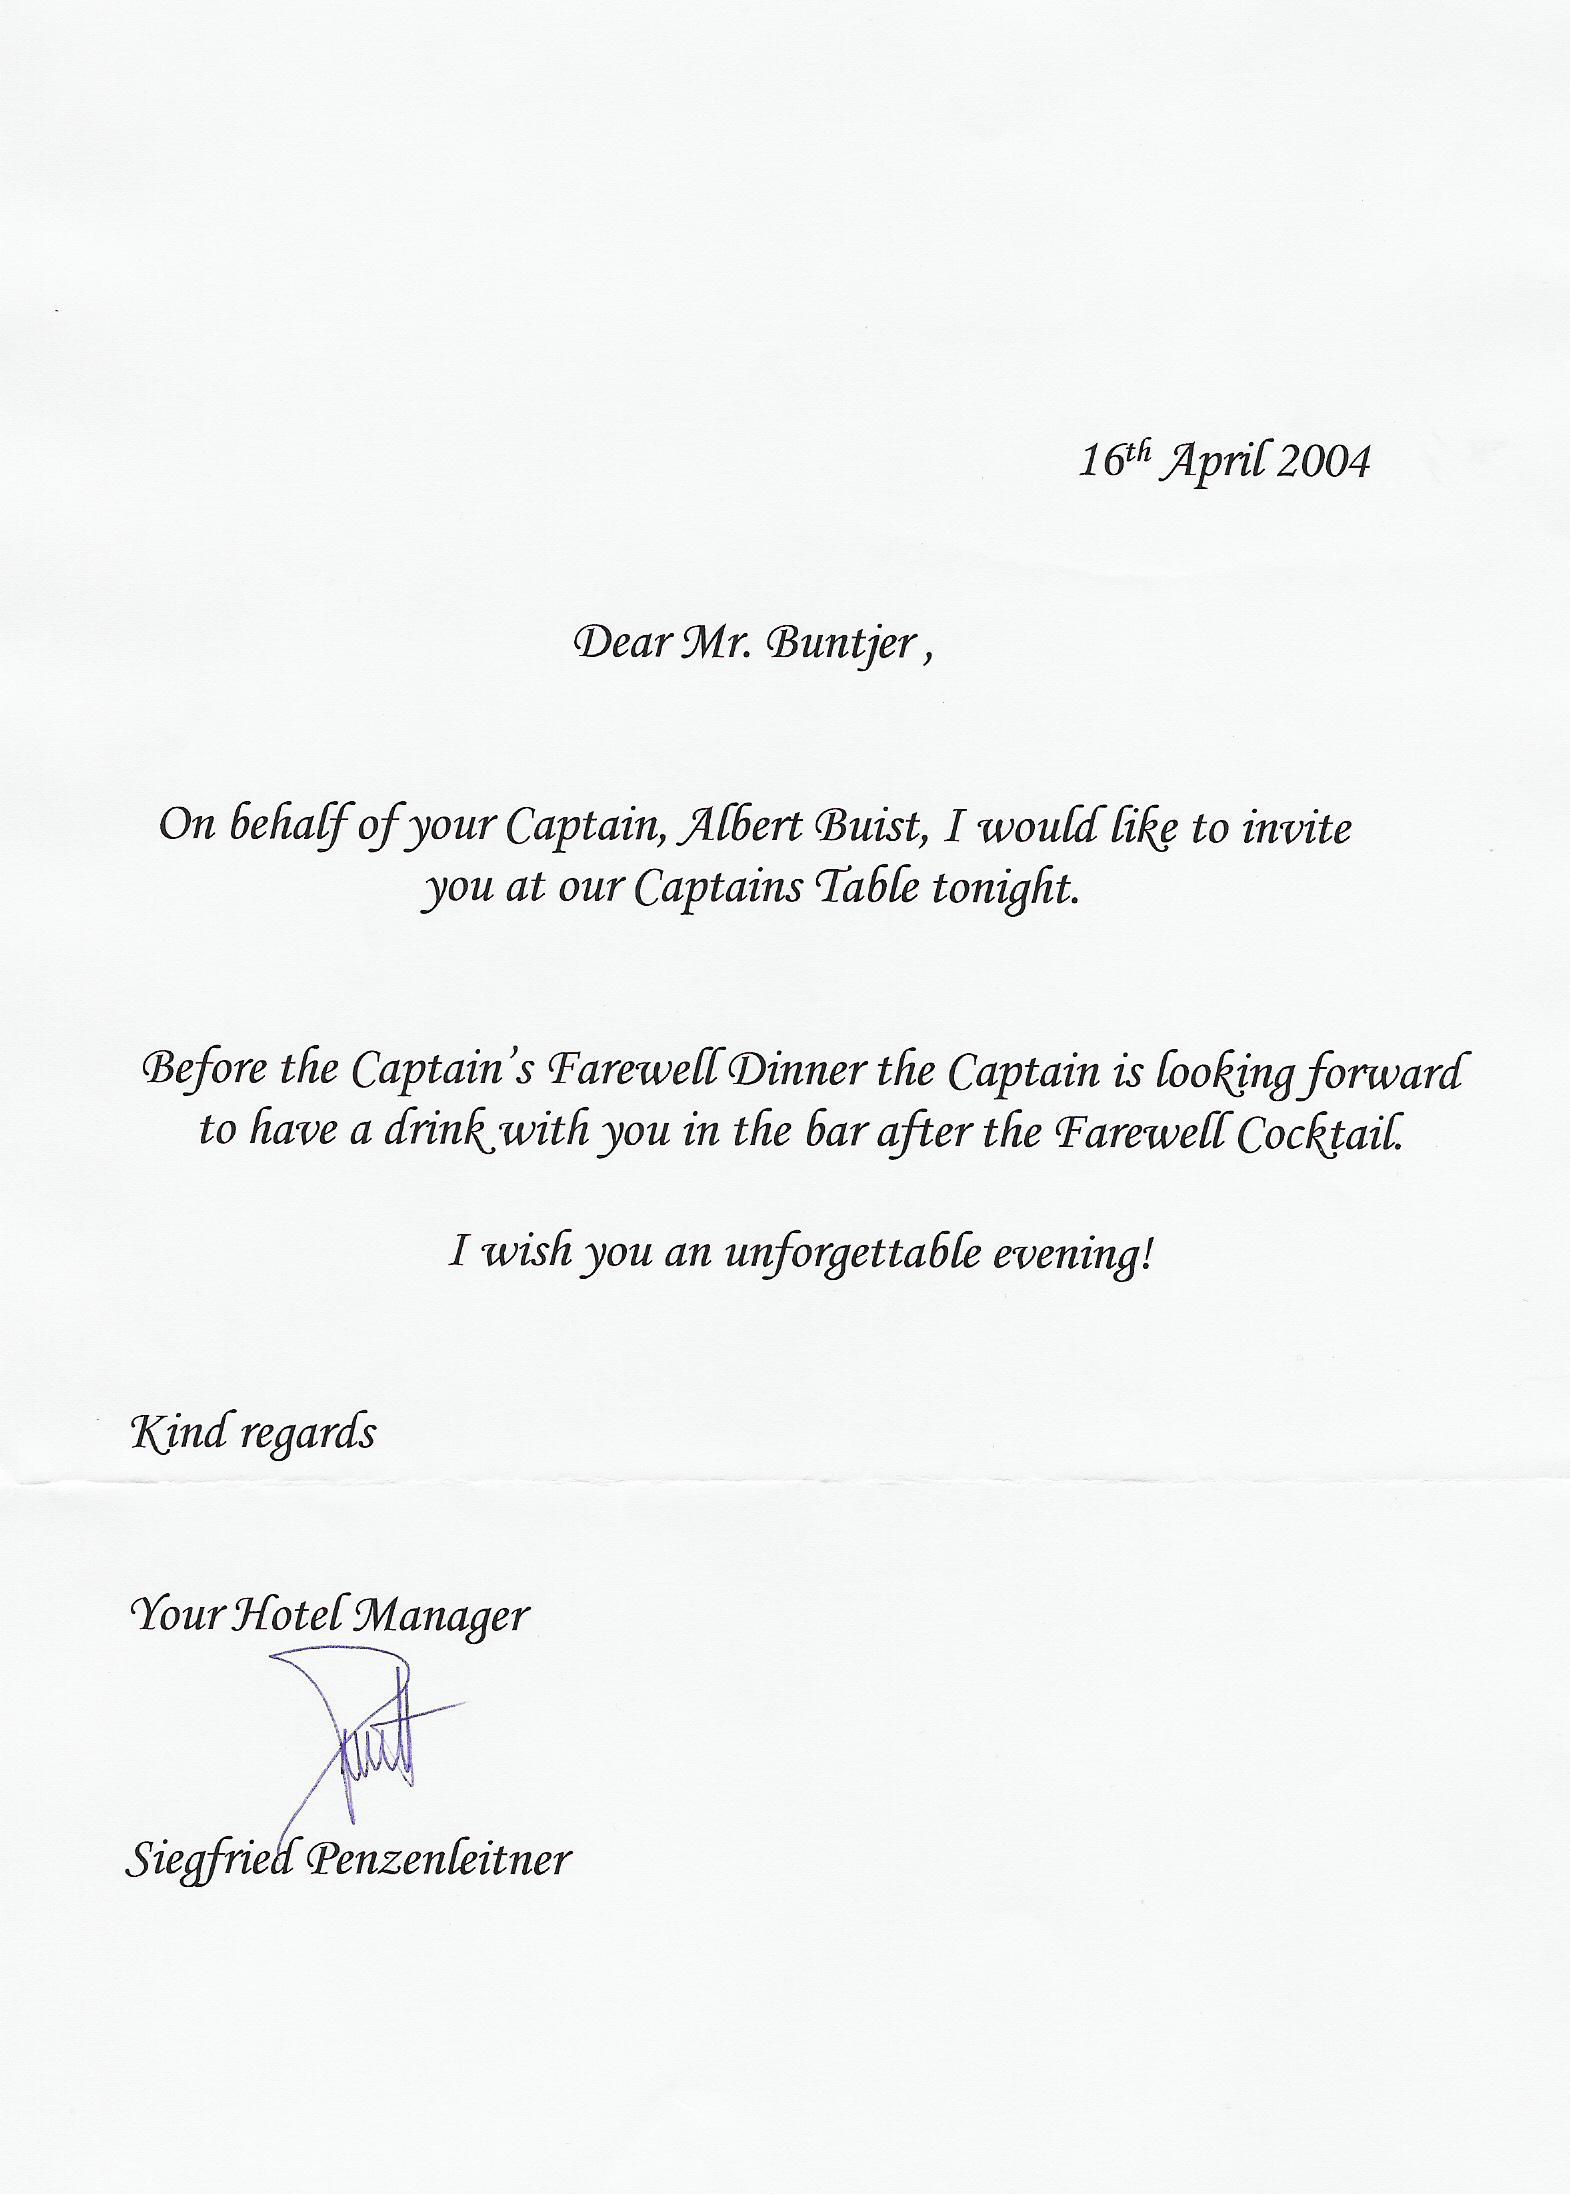 16th April 2004
Dear Mr. Buntjer ,
On behalf of your Captain, Albert Buist, I would like to invite
you at our Captains Table tonight.
Before the Captain’s Farewell Dinner the Captain is looking forward
to have a drink with you in the bar after the Farewell Cocktail.
I wish you an unforgettable evening!
Kind regards
Your Hotel Manager
Siegfried Penzenleitner